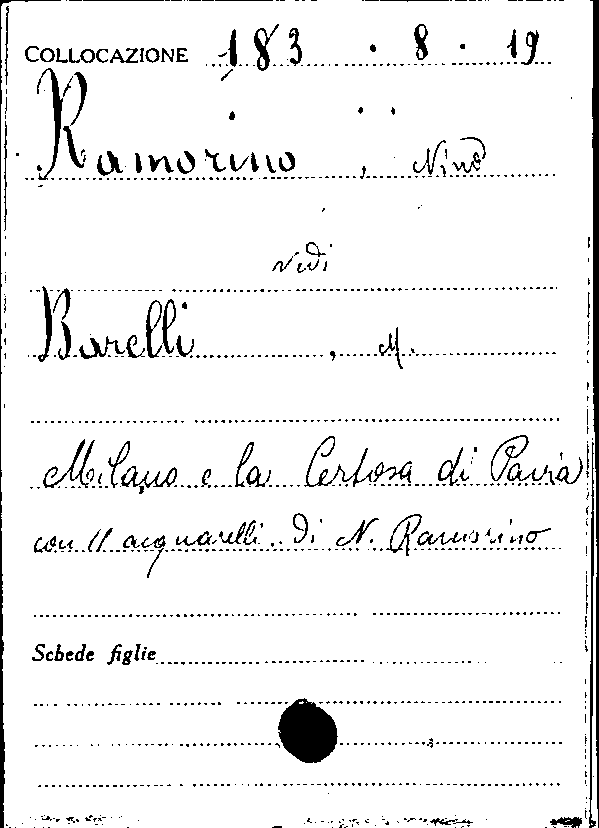 COLLOCAZIONE 183 . 8 . 19
Ramorino, Nino
vedi
Barelli, M.
Milano e la Certosa di Pavia
con 11 acquarelli di N. Ramorino
Schede figlie